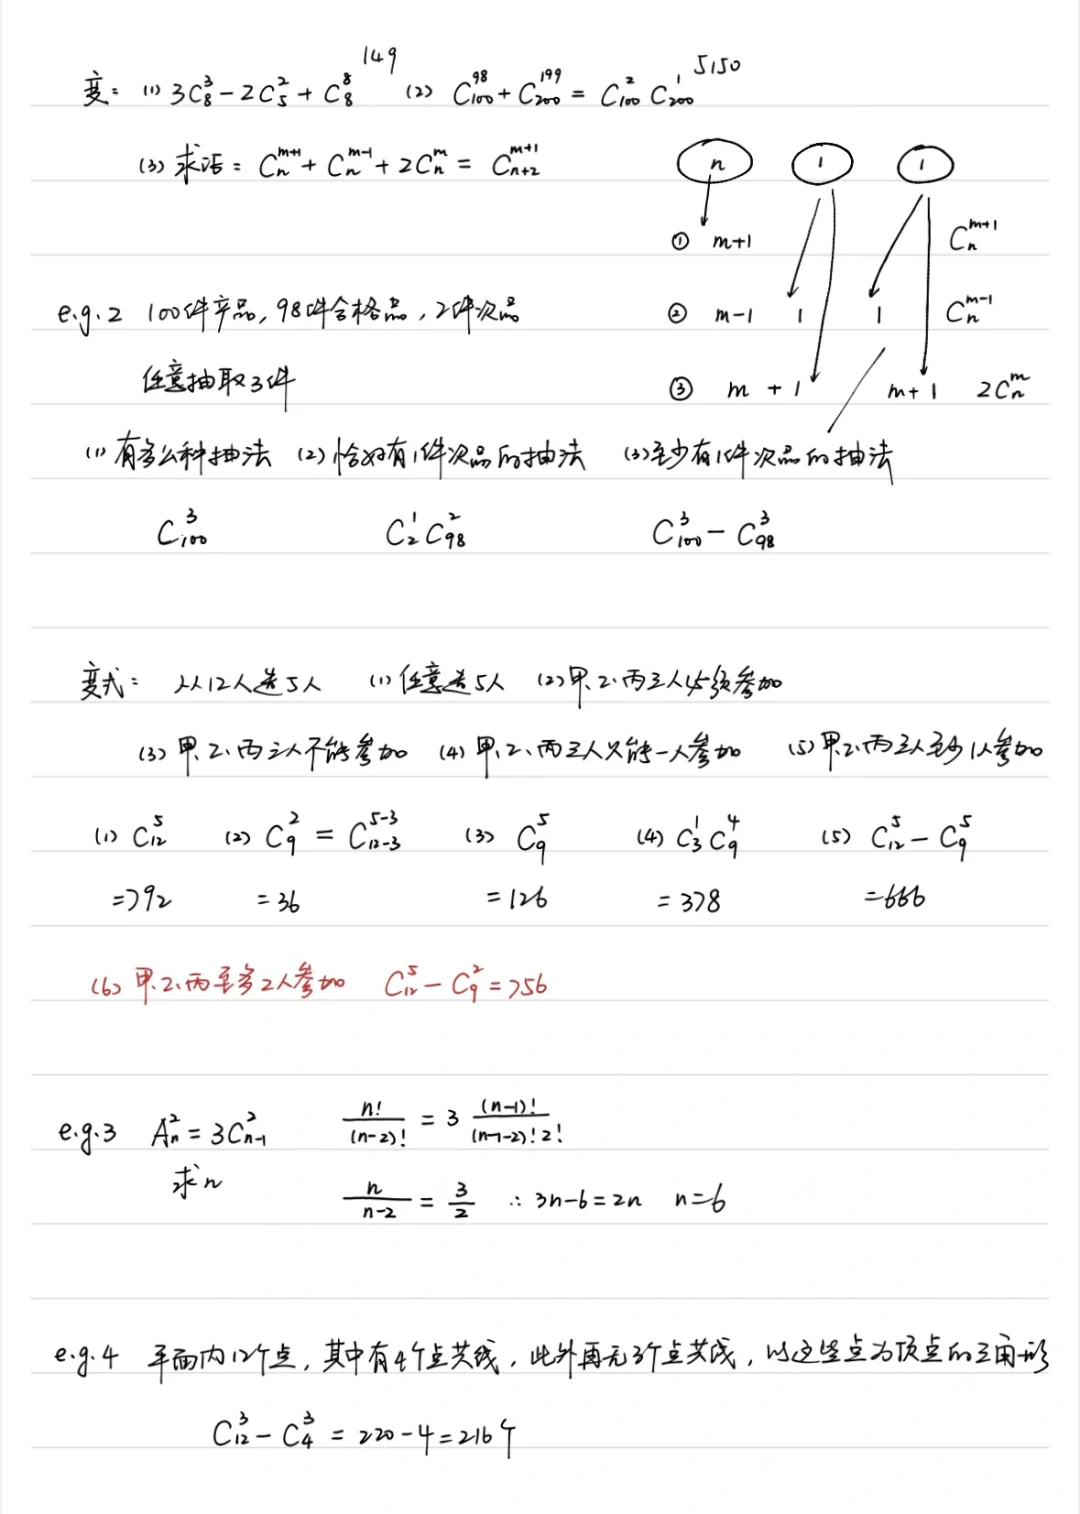 变: (1) 3C₈³-2C₅²+C₈⁸ 149 (2) C₁₀₀⁹⁸+C₂₀₀¹⁹⁹ = C₁₀₀² C₂₀₀¹ 5150
(3) 求证: Cₙᵐ⁺¹+Cₙᵐ⁻¹+2Cₙᵐ = Cₙ₊₂ᵐ⁺¹
n 1 1
① m+1 Cₙᵐ⁺¹
② m-1 1 1 Cₙᵐ⁻¹
③ m + 1 m+1 2Cₙᵐ
e.g.2 100件产品, 98件合格品, 2件次品
任意抽取3件
(1) 有多么种抽法 (2) 恰好有1件次品的抽法 (3) 至少有1件次品的抽法
C₁₀₀³ C₂¹C₉₈² C₁₀₀³-C₉₈³
变式: 从12人选5人 (1) 任意选5人 (2) 甲、乙、丙三人必须参加
(3) 甲、乙、丙三人不能参加 (4) 甲、乙、丙三人只能一人参加 (5) 甲乙丙三人至少1人参加
(1) C₁₂⁵ (2) C₉² = C₁₂₋₃⁵⁻³ (3) C₉⁵ (4) C₃¹C₉⁴ (5) C₁₂⁵-C₉⁵
=792 =36 =126 =378 =666
(6) 甲、乙、丙至多2人参加 C₁₂⁵-C₉²=756
e.g.3 Aₙ²=3Cₙ₋₁² n!/(n-2)! = 3 (n-1)!/(n-1-2)!2!
求n n/n-2 = 3/2 ∴ 3n-6=2n n=6
e.g.4 平面内12个点, 其中有4个点共线, 此外再无3个点共线, 以这些点为顶点的三角形
C₁₂³-C₄³ = 220-4=216个